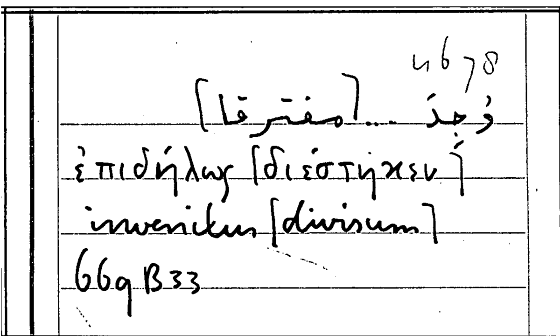 وُجِدَ ... [مفترقا]
ἐπιδήλως [διέστηκεν]
invenitur [divisum]
669 B33